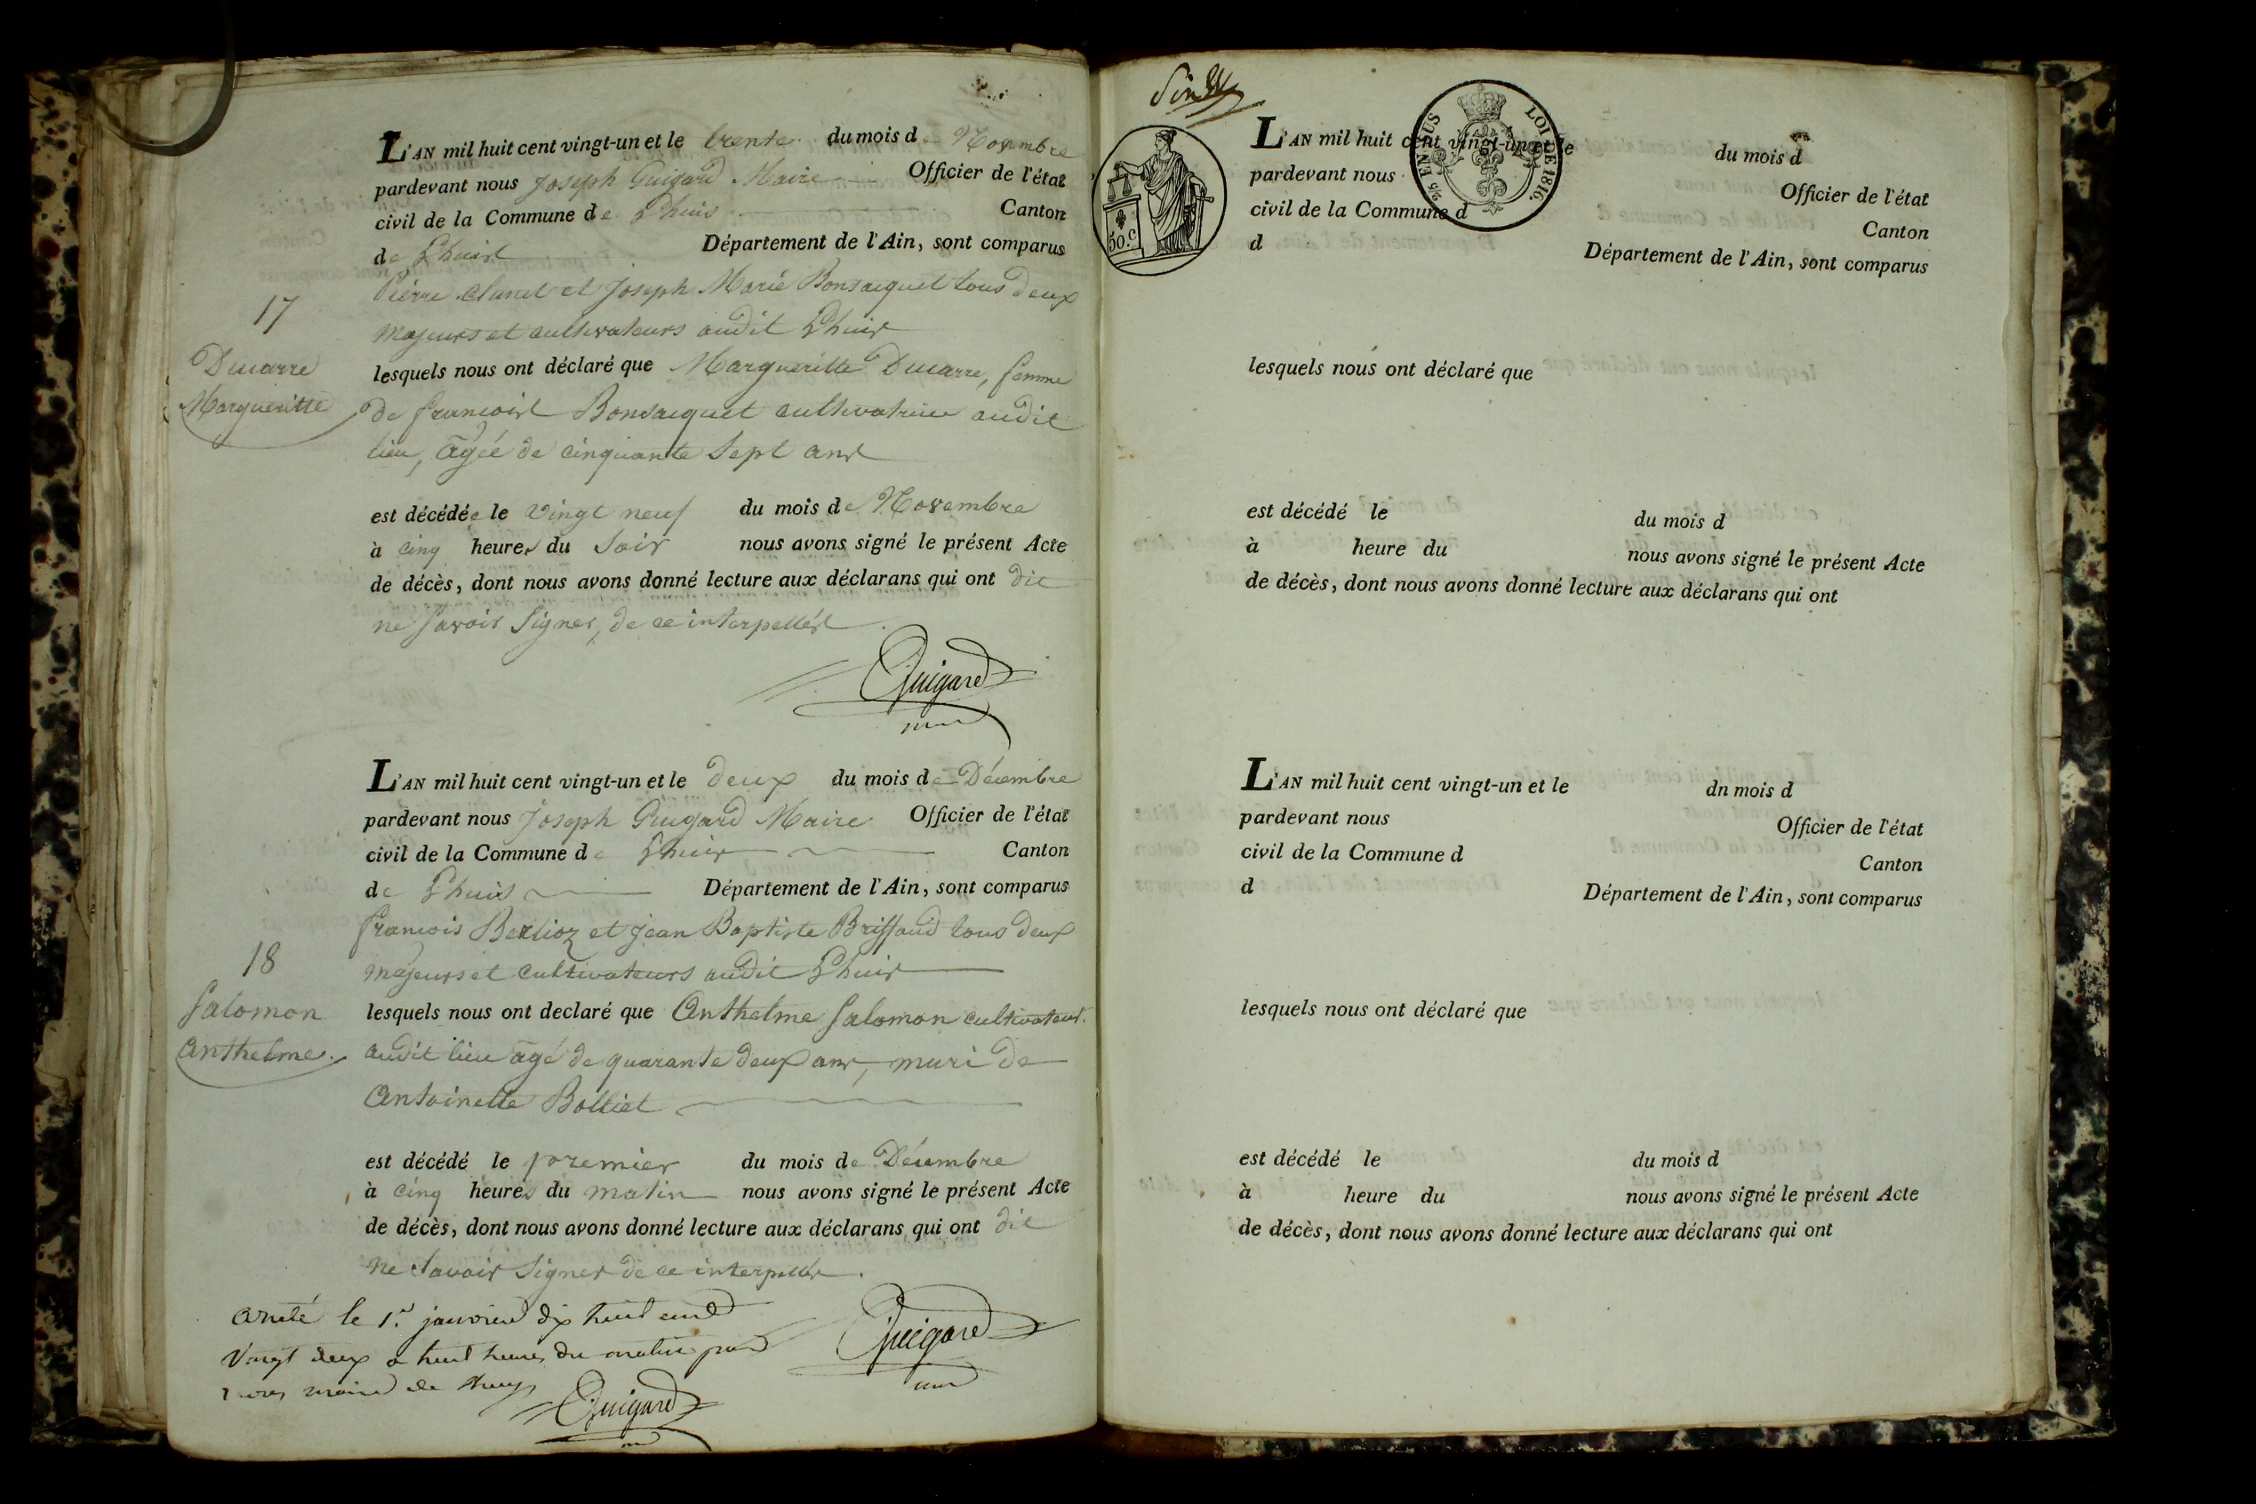 L'AN mil huit cent vingt-un et le trente du mois de Novembre
pardevant nous Joseph Guigard Maire Officier de l'état
civil de la Commune de Lhuis Canton
de Lhuis Département de l'Ain, sont comparus
Pierre Clunet et Joseph Marie Bonsacquet tous deux
majeurs et cultivateurs audit Lhuis
17
Ducarre
Margueritte
lesquels nous ont déclaré que Margueritte Ducarre, femme
de francois Bonsacquet cultivatrice audit
lieu, agée de cinquante Sept ans
est décédée le vingt neuf du mois de Novembre
à cinq heures du Soir nous avons signé le présent Acte
de décès, dont nous avons donné lecture aux déclarans qui ont dit
ne savoir Signer, de ce interpellés
Guigard
L'AN mil huit cent vingt-un et le deux du mois de Décembre
pardevant nous Joseph Guigard Maire Officier de l'état
civil de la Commune de Lhuis Canton
de Lhuis Département de l'Ain, sont comparus
francois Berlioz et jean Baptiste Briffaud tous deux
majeurs et cultivateurs audit Lhuis
18
Salomon
Anthelme
lesquels nous ont declaré que Anthelme Salomon cultivateur
audit lieu agé de quarante deux ans, mari de
Antoinette Bolliet
est décédé le premier du mois de Décembre
à cinq heures du matin nous avons signé le présent Acte
de décès, dont nous avons donné lecture aux déclarans qui ont dit
ne Savoir Signer de ce interpellés
Guigard
arreté le 1.r janvier dix huit cent
vingt deux a huit heures du matin par
nous maire de Lhuys
Guigard
50.c
EN SUS
LOI DE 1816.
L'AN mil huit cent vingt-un et le du mois d
pardevant nous Officier de l'état
civil de la Commune d Canton
d Département de l'Ain, sont comparus
lesquels nous ont déclaré que
est décédé le du mois d
à heure du nous avons signé le présent Acte
de décès, dont nous avons donné lecture aux déclarans qui ont
L'AN mil huit cent vingt-un et le dn mois d
pardevant nous Officier de l'état
civil de la Commune d Canton
d Département de l'Ain, sont comparus
lesquels nous ont déclaré que
est décédé le du mois d
à heure du nous avons signé le présent Acte
de décès, dont nous avons donné lecture aux déclarans qui ont